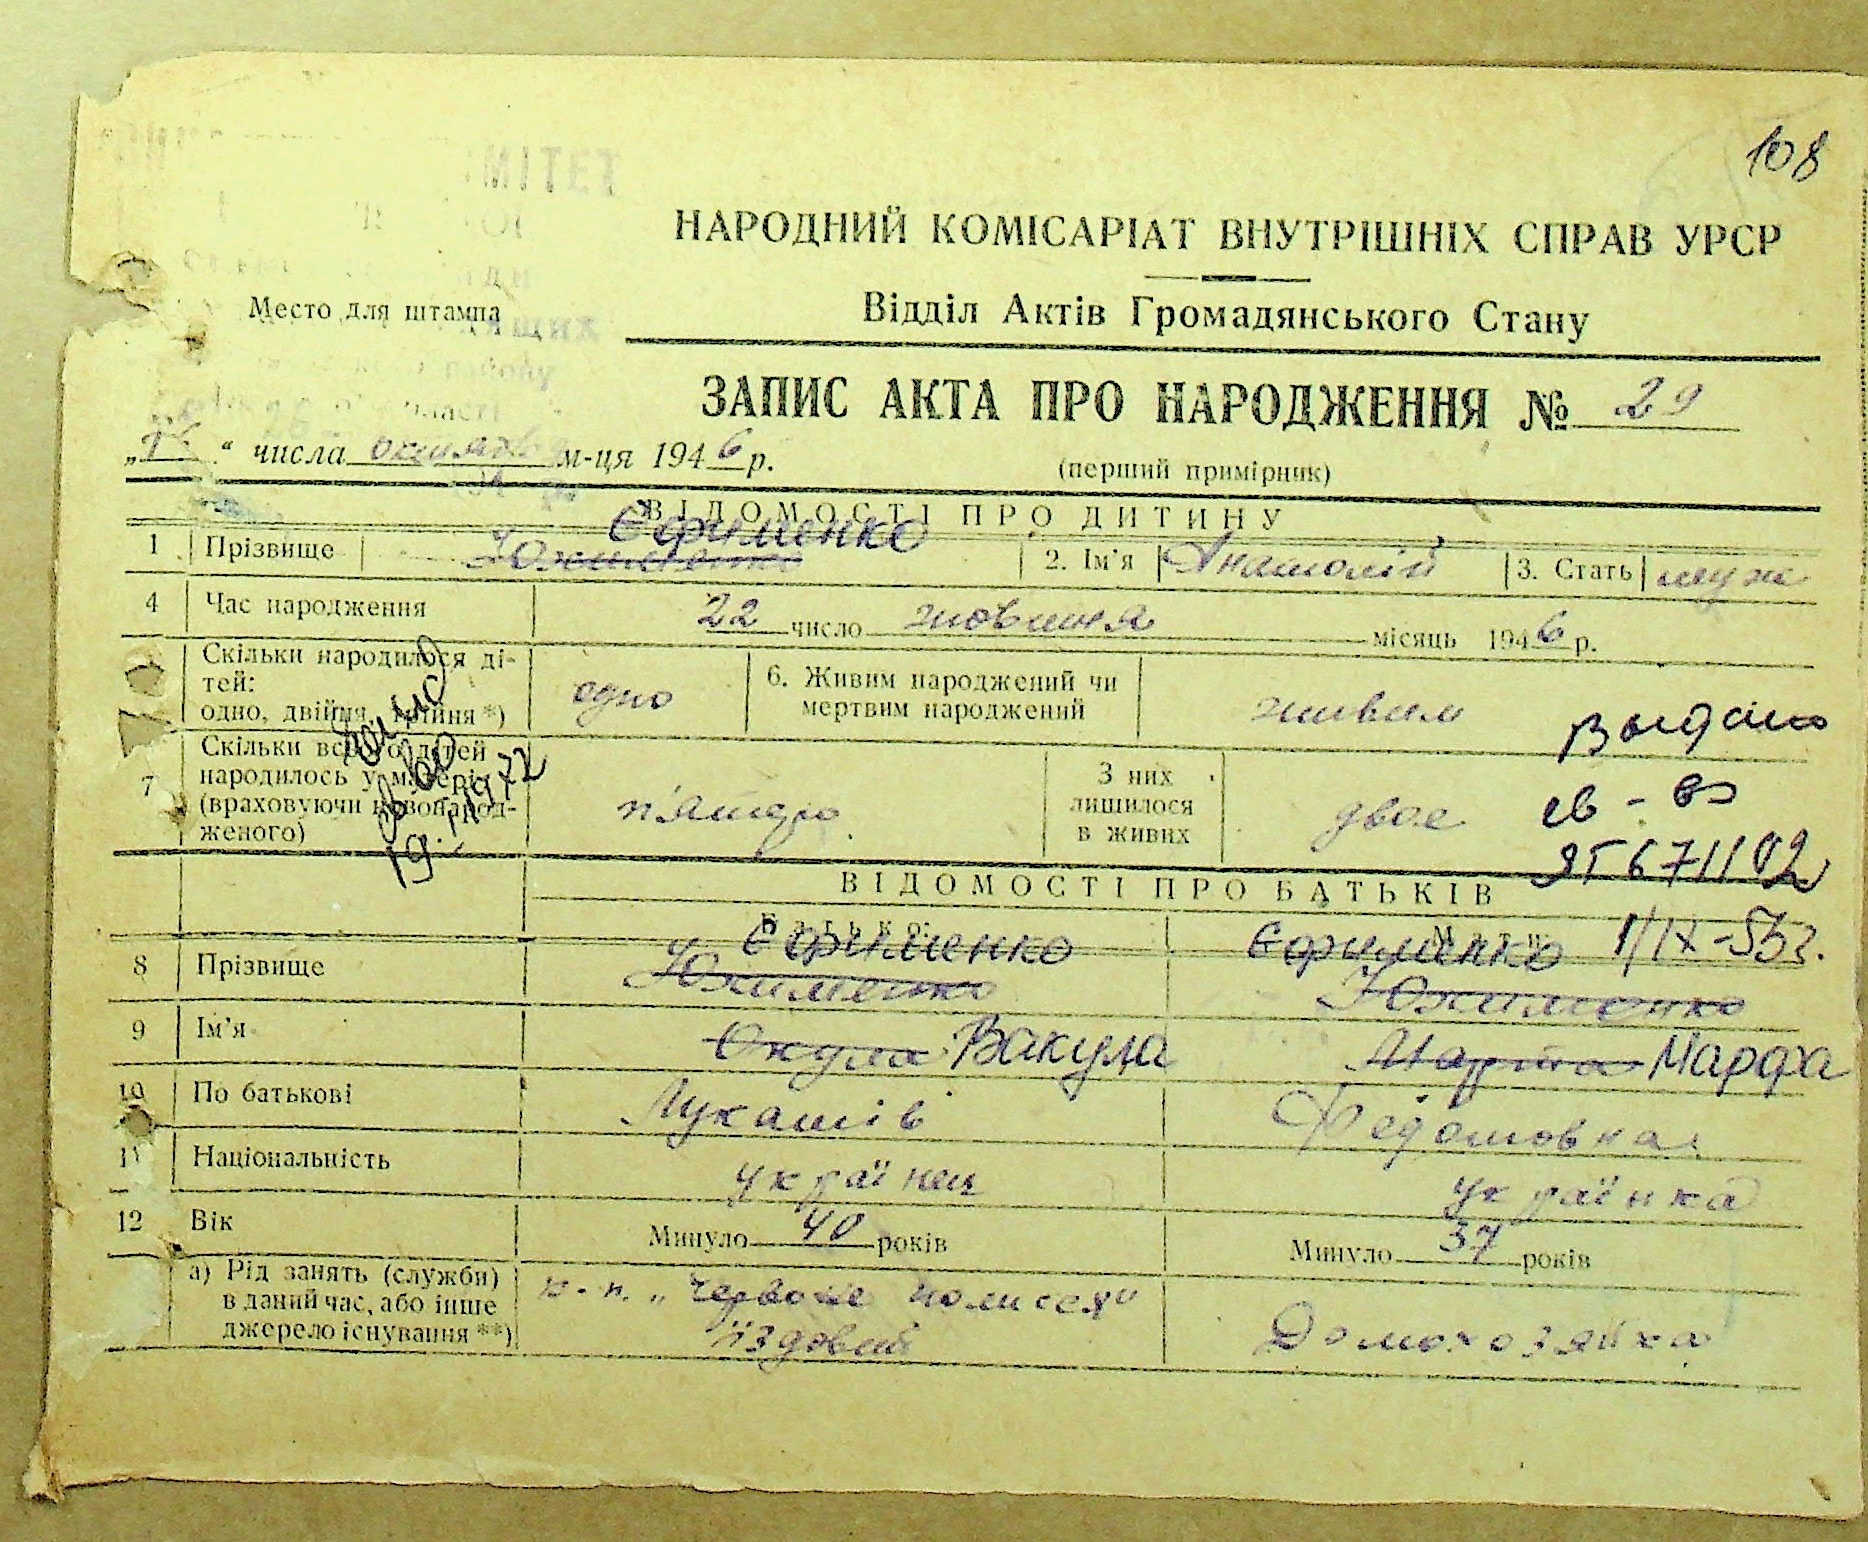 108
НАРОДНИЙ КОМІСАРІАТ ВНУТРІШНІХ СПРАВ УРСР
Место для штампа
Відділ Актів Громадянського Стану
ЗАПИС АКТА ПРО НАРОДЖЕННЯ № 29
" числа м-ця 1946 р.
(перший примірник)
ВІДОМОСТІ ПРО ДИТИНУ
Єфименко
1 Прізвище Юхименко 2. Ім'я Анатолій 3. Стать муж
4 Час народження 22 число жовтня місяць 1946 р.
Скільки народилося ді-
тей:
одно, двійня, трійня *) одно 6. Живим народжений чи
мертвим народжений живим
Выдано
7 Скільки всього дітей
народилось у матері
(враховуючи новонарод-
женого) п'ятеро З них
лишилося
в живих двоє
св-во
ЯГ 671102
19. 1972
ВІДОМОСТІ ПРО БАТЬКІВ
Батько: Мати:
1/IX-53г.
Єфименко Єфименко
8 Прізвище Юхименко Юхименко
9 Ім'я Окула Вакула Марфа
10 По батькові Лукашів Федотовна
11 Національність українец українка
12 Вік Минуло 40 років Минуло 37 років
а) Рід занять (служби)
в даний час, або інше
джерело існування **) к-п. „Червоне полисся"
їздовий Домохозяйка